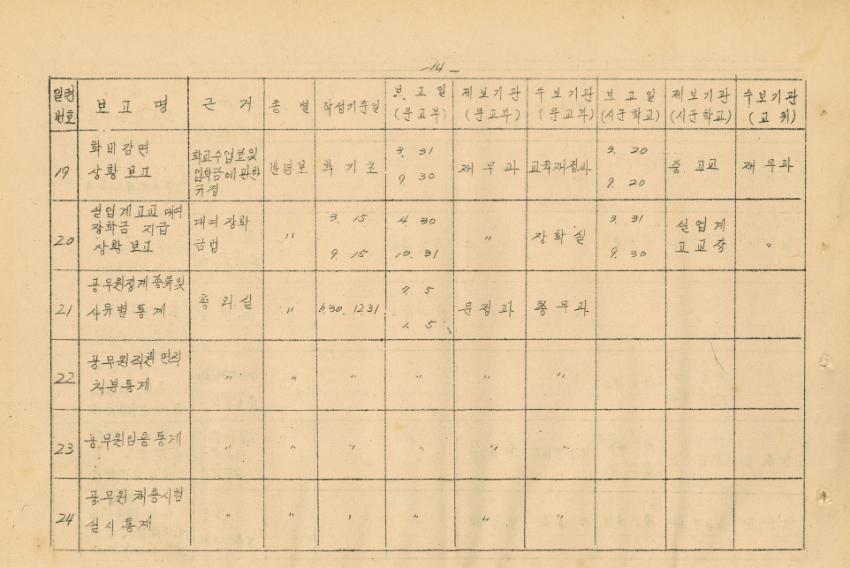 - 14 -
일련 번호 보고명 근거 종별 작성기준일 보고일 (문교부) 제보기관 (문교부) 주보기관 (문교부) 보고일 (시군학교) 제보기관 (시군학교) 주보기관 (교위)
19 학비감면 상황보고 학교수업료및 입학금에관한 규정 반년보 학기초 3. 31 9. 30 재무과 교육재정과 3. 20 9. 20 중.고교 재무과
20 실업계고교 대여 장학금 지급 상황보고 대여장학 금법 〃 3. 15 9. 15 4. 30 10. 31 〃 장학실 3. 31 9. 30 실업계 고교장 〃
21 공무원징계종류및 사유별통계 총리실 〃 6.30. 12.31 7. 5 1. 5 문정과 총무과
22 공무원직권면직 처분통계 〃 〃 〃 〃 〃 〃
23 공무원임용통계 〃 〃 〃 〃 〃 〃
24 공무원채용시험 실시통계 〃 〃 〃 〃 〃 〃